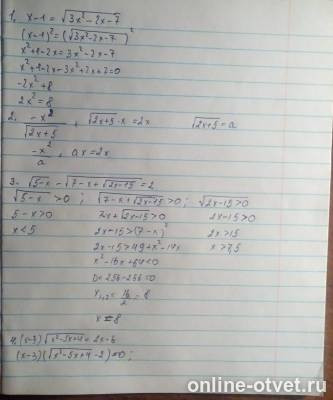 1. x-1 = √3x²-2x-7
(x-1)² = (√3x²-2x-7)²
x²+1-2x = 3x²-2x-7
x²+1-2x-3x²+2x+7=0
-2x²+8
2x²=8
2. -x² / √2x+5 ; √2x+5 · x = 2x √2x+5 = a
-x² / a ; ax = 2x
3. √5-x - √7-x+√2x-15 = 2
√5-x >0 ; √7-x+√2x-15 >0 ; √2x-15 >0
5-x>0 7-x+√2x-15 >0 2x-15>0
x<5 2x-15>(7-x)² 2x>15
2x-15>49+x²-14x x>7,5
x²-16x+64<0
D=256-256=0
x₁,₂ = 16/2 = 8
x=8
4. (x-3)√x²-5x+4 = 2x-6
(x-3)(√x²-5x+4 -2)=0;
online-otvet.ru